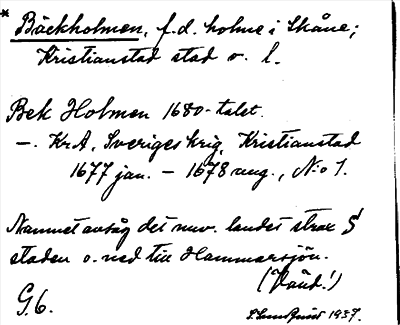 * Bäckholmen, f.d. holme i Skåne;
Kristianstad stad o. l.
Bek Holmen 1680-talet.
—. KrA, Sveriges krig, Kristianstad
1677 jan. – 1678 aug., N:o 1.
Namnet avsåg det nuv. landet strax S
staden o. ned till Hammarsjön.
(Vänd!)
G. 6.
1937.